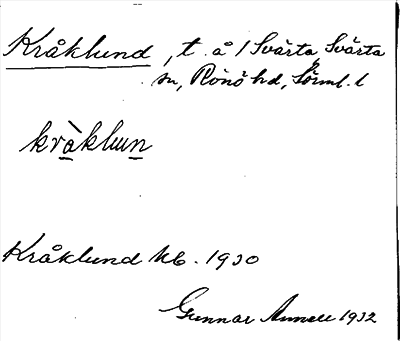 Kråklund, t. å 1 Svärta, Svärta
sn, Rönö hd, Sörml. l
kràklun
Kråklund kb. 1930
Gunnar 1932